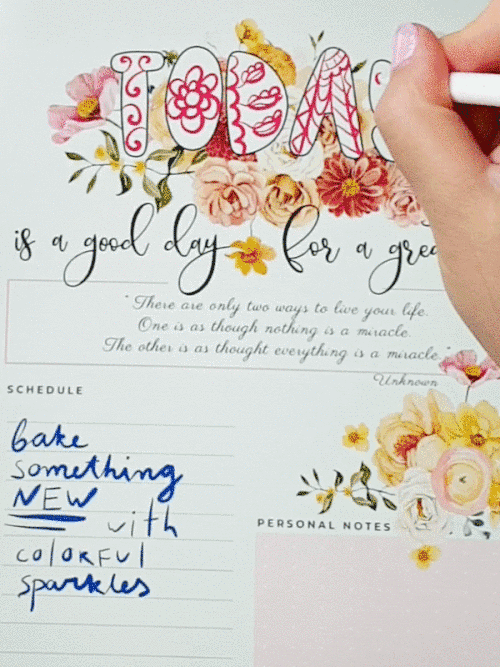 TODA
is a good day for a
"There are only two ways to live your life.
One is as though nothing is a miracle.
The other is as thought everything is a miracle."
Unknown
SCHEDULE
bake
something
NEW with
COlORFUl
sparkles
PERSONAL NOTES